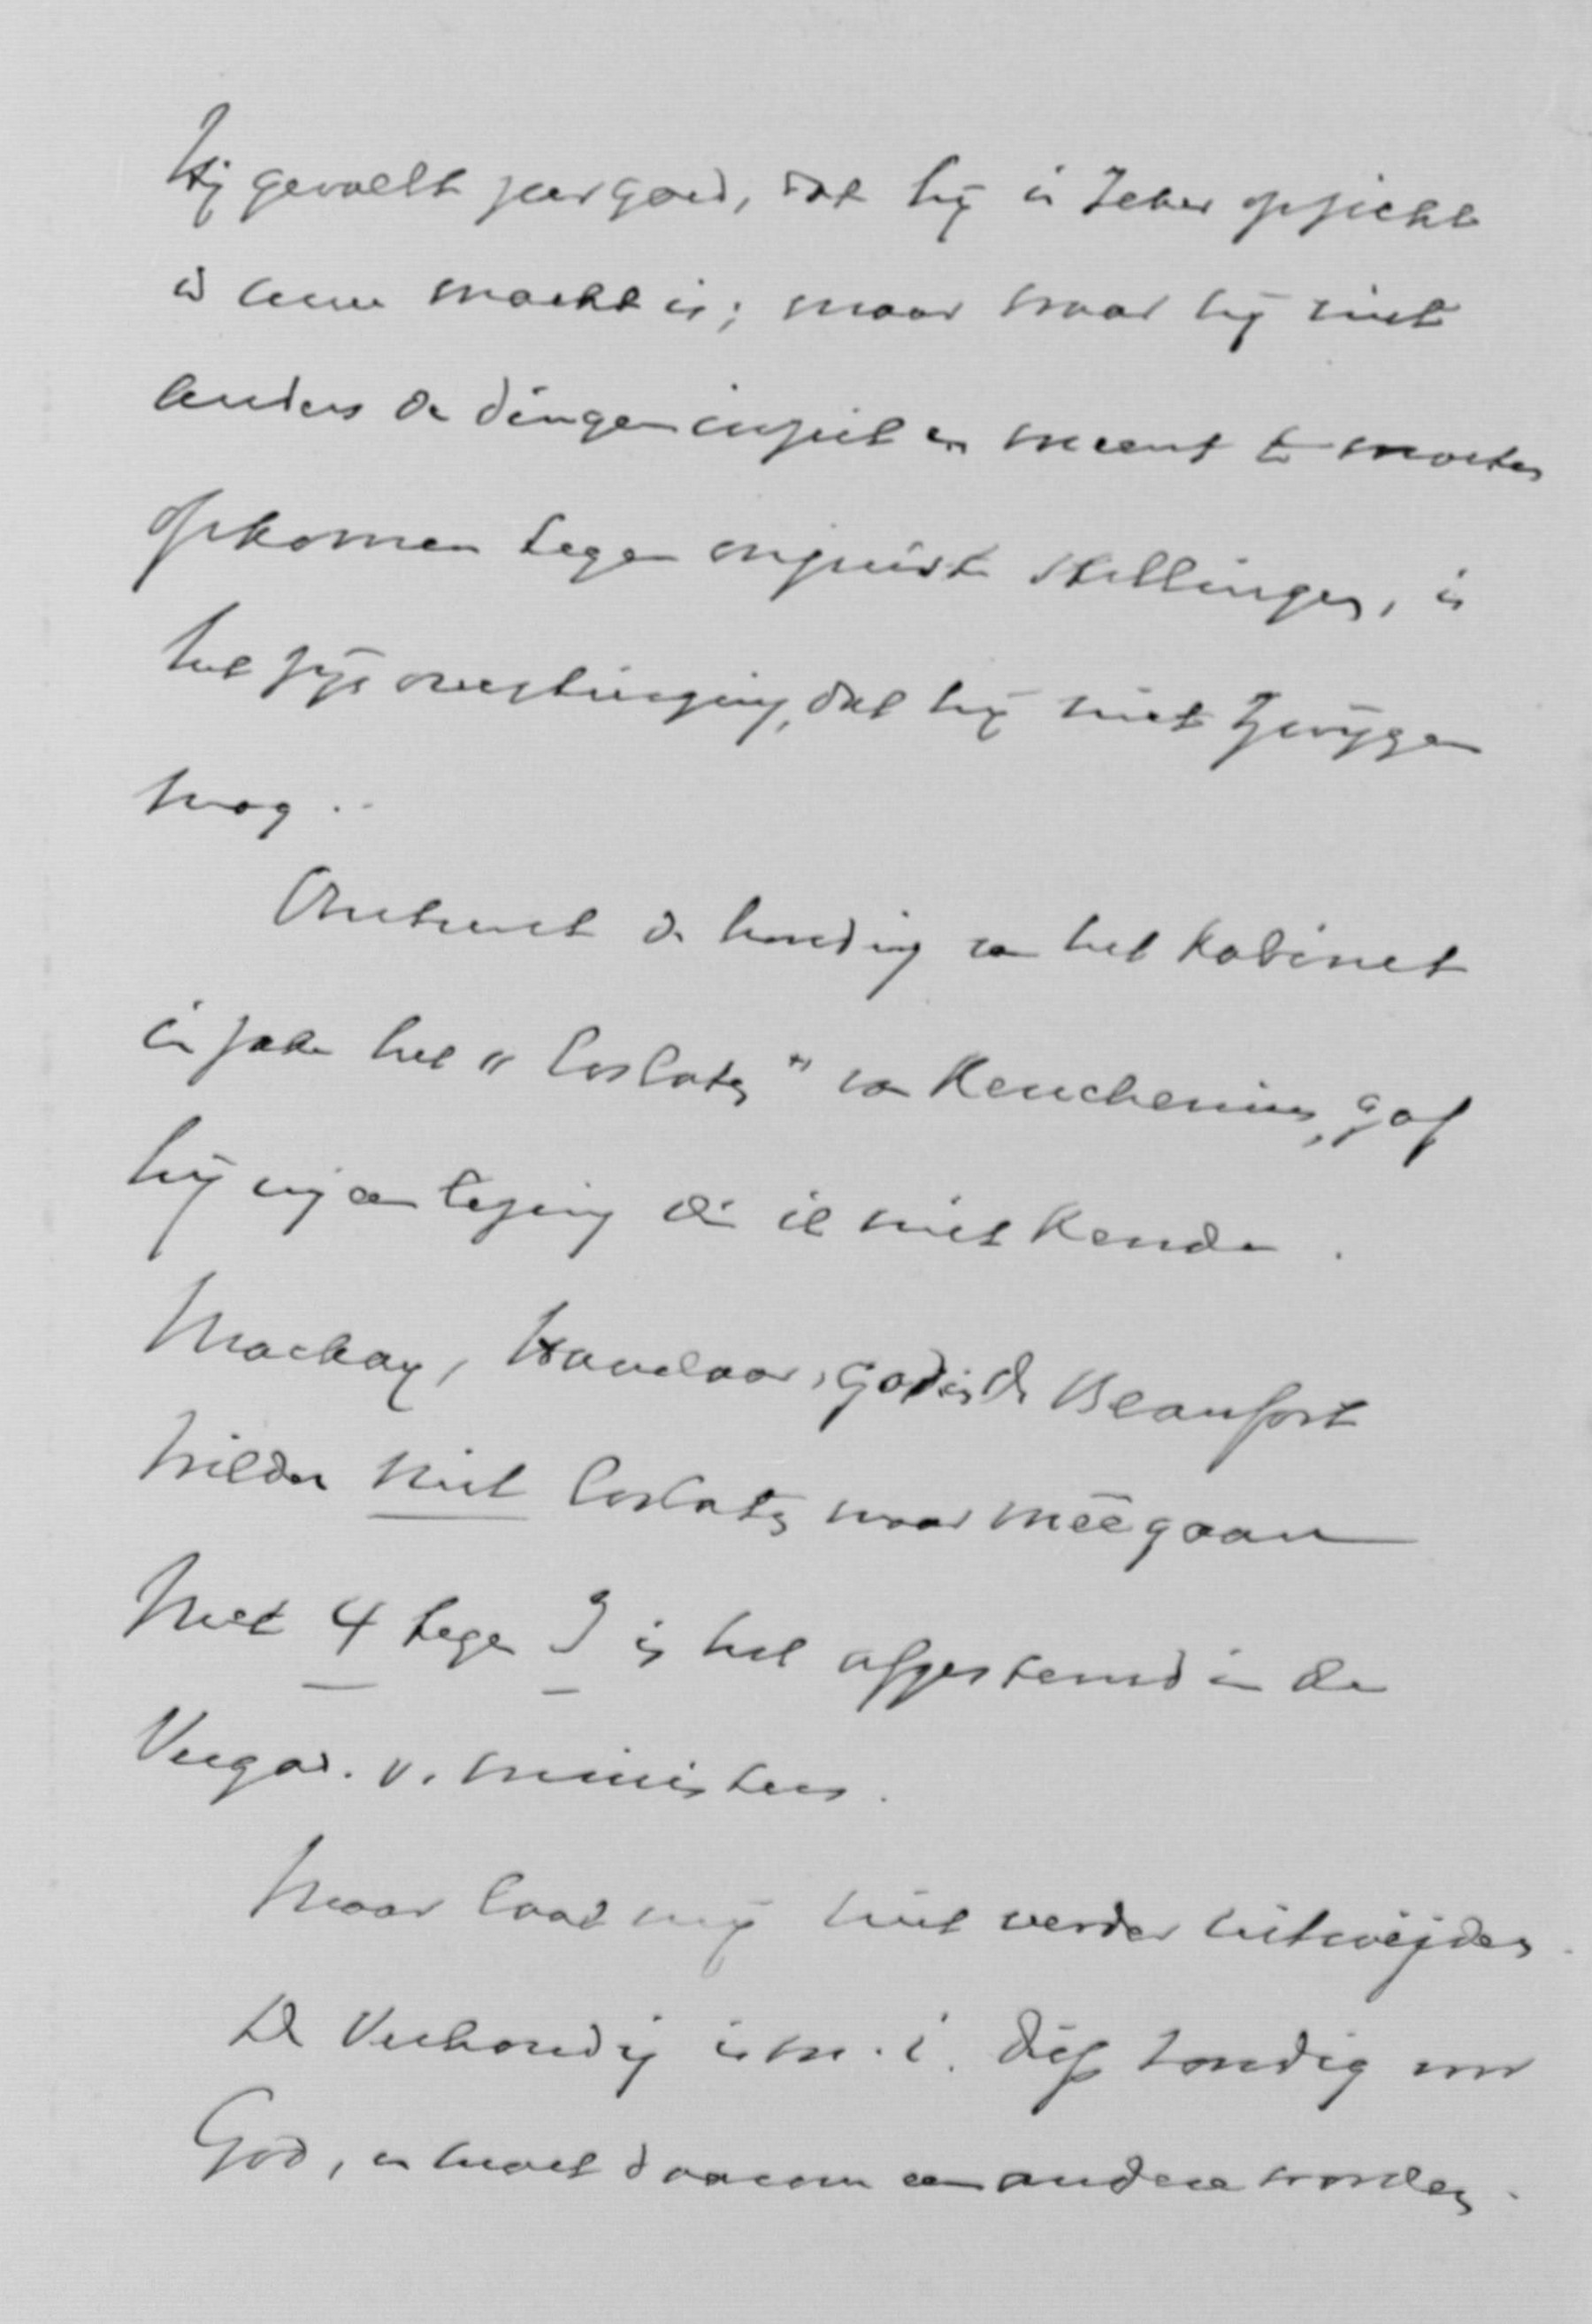 Hij gevoelt zeer goed, dat hij in zeker opzicht
in uwe macht is; maar waar hij niet
anders de dingen inziet en meent te moeten
opkomen tegen onjuiste stellingen, is
het zijn overtuiging, dat hij niet zwijgen
mag..
Omtrent de houding van het Kabinet
in zake het "loslaten" van Keuchenius, gaf
hij mij een lezing die ik niet kende.
Mackay, Havelaar, Godin de Beaufort
wilden niet loslaten maar méégaan
Met 4 tegen 3 is het afgestemd in de
Vergad. v. ministers.
Maar laat mij niet verder uitweijden.
De Verhouding is m. i. diep zondig voor
God, en moet daarom een andere worden.